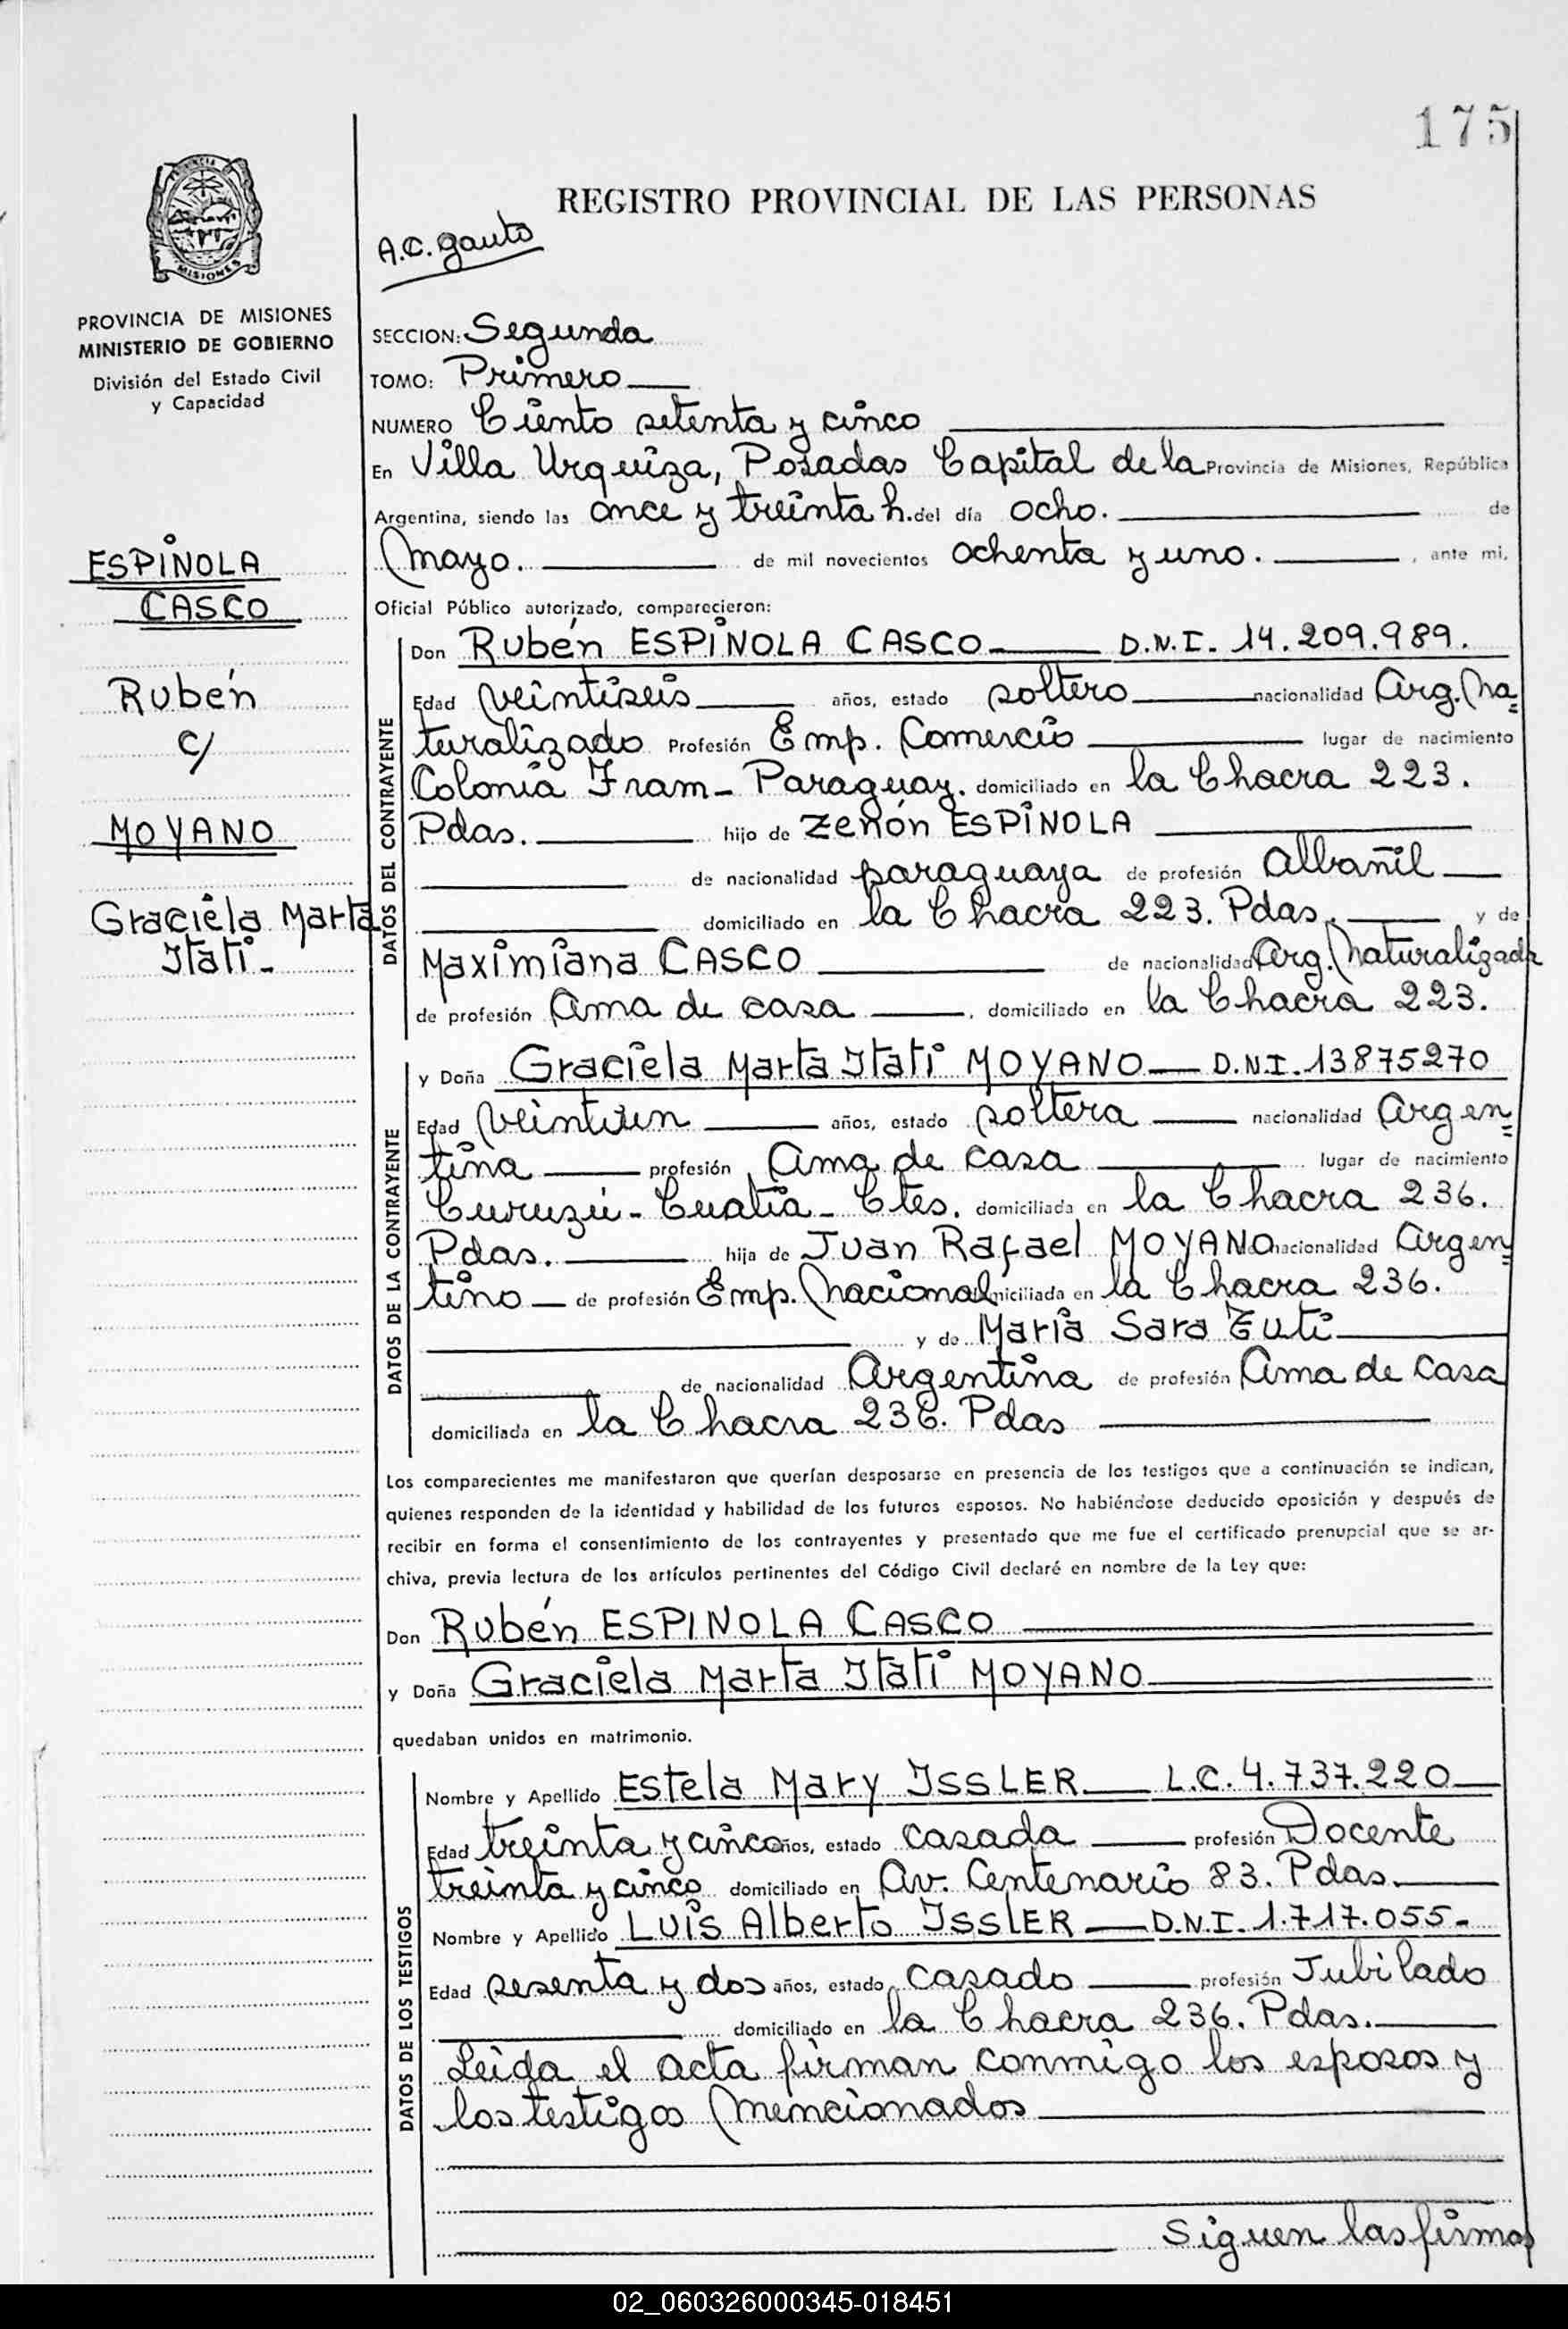 175
REGISTRO PROVINCIAL DE LAS PERSONAS
A.C. Gauto
PROVINCIA
MISIONES
PROVINCIA DE MISIONES
MINISTERIO DE GOBIERNO
División del Estado Civil
y Capacidad
ESPINOLA
CASCO
Rubén
c/
MOYANO
Graciela Marta
Itati -
SECCION: Segunda
TOMO: Primero
NUMERO Ciento setenta y cinco
En Villa Urquiza, Posadas Capital de la Provincia de Misiones, República
Argentina, siendo las once y treinta h. del día ocho. de
Mayo. de mil novecientos ochenta y uno. , ante mi,
Oficial Público autorizado, comparecieron:
DATOS DEL CONTRAYENTE
Don Rubén ESPINOLA CASCO D.N.I. 14.209.989.
Edad veintiseis años, estado soltero nacionalidad Arg. Na=
turalizado Profesión Emp. Comercio lugar de nacimiento
Colonia Fram - Paraguay. domiciliado en la Chacra 223.
Pdas. hijo de Zenón ESPINOLA
de nacionalidad paraguaya de profesión Albañil
domiciliado en la Chacra 223. Pdas. y de
Maximiana CASCO de nacionalidad Arg. Naturalizada
de profesión Ama de casa , domiciliado en la Chacra 223.
DATOS DE LA CONTRAYENTE
y Doña Graciela Marta Itati MOYANO D.N.I. 13875270
Edad veintiun años, estado soltera nacionalidad Argen=
tina profesión Ama de casa lugar de nacimiento
Curuzú - Cuatia - Ctes. domiciliada en la Chacra 236.
Pdas. hija de Juan Rafael MOYANO nacionalidad Argen=
tino de profesión Emp. Nacional miciliada en la Chacra 236.
y de Maria Sara Tuti
de nacionalidad Argentina de profesión Ama de casa
domiciliada en la Chacra 236. Pdas
Los comparecientes me manifestaron que querían desposarse en presencia de los testigos que a continuación se indican,
quienes responden de la identidad y habilidad de los futuros esposos. No habiéndose deducido oposición y después de
recibir en forma el consentimiento de los contrayentes y presentado que me fue el certificado prenupcial que se ar-
chiva, previa lectura de los artículos pertinentes del Código Civil declaré en nombre de la Ley que:
Don Rubén ESPINOLA CASCO
y Doña Graciela Marta Itati MOYANO
quedaban unidos en matrimonio.
DATOS DE LOS TESTIGOS
Nombre y Apellido Estela Mary ISSLER L.C. 4.737.220
Edad treinta y cinco años, estado casada profesión Docente
treinta y cinco domiciliado en Av. Centenario 83. Pdas.
Nombre y Apellido Luis Alberto ISSLER D.N.I. 1.717.055-
Edad sesenta y dos años, estado casado profesión Jubilado
domiciliado en la Chacra 236. Pdas.
Leida el acta firman conmigo los esposos y
los testigos mencionados
Siguen las firmas
02_060326000345-018451